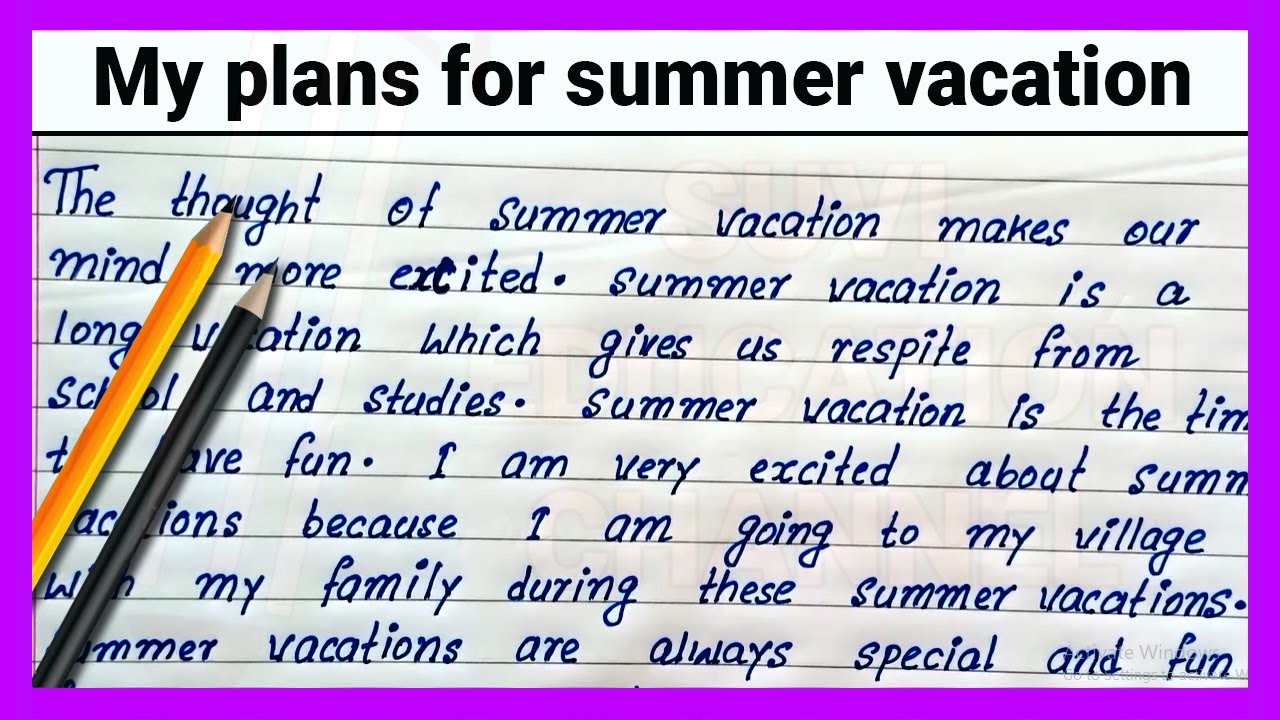 My plans for summer vacation
The thought of summer vacation makes our
mind more excited. summer vacation is a
long vacation which gives us respite from
school and studies. Summer vacation is the tim
to have fun. I am very excited about summ
vacations because I am going to my village
with my family during these summer vacations.
summer vacations are always special and fun
SUVI
EDUCATION
CHANNEL
Activate Windows
Go to Settings to activate W